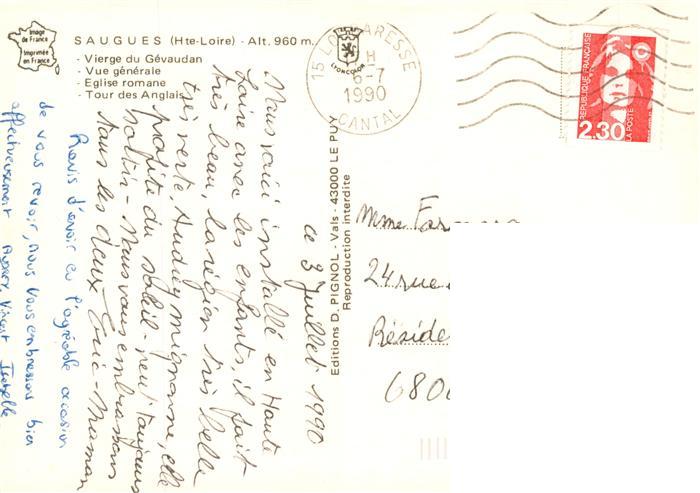 Image
de France
Imprimée
en France
SAUGUES (Hte-Loire) - Alt. 960 m.
- Vierge du Gévaudan
- Vue générale
- Eglise romane
- Tour des Anglais
LYONCOLOR
15 LO ARESSE
H
6-7
1990
CANTAL
REPUBLIQUE FRANÇAISE
2,30
LA POSTE
Editions D. PIGNOL - Vals - 43000 LE PUY
Reproduction interdite
ce 3 Juillet 1990
Nous voici installé en Haute
Loire avec les enfants, il fait
très beau, la région très belle
très verte, Audrey mignonne, elle
profite du soleil - veut toujours
sortir - Nous vous embrassons
tous les deux Eric - Maman
Ravis d'avoir eu l'agréable occasion
de vous revoir, nous vous embrassons bien
affectueusement Audrey, Vincent Isabelle
Mme
24 rue
Réside
680